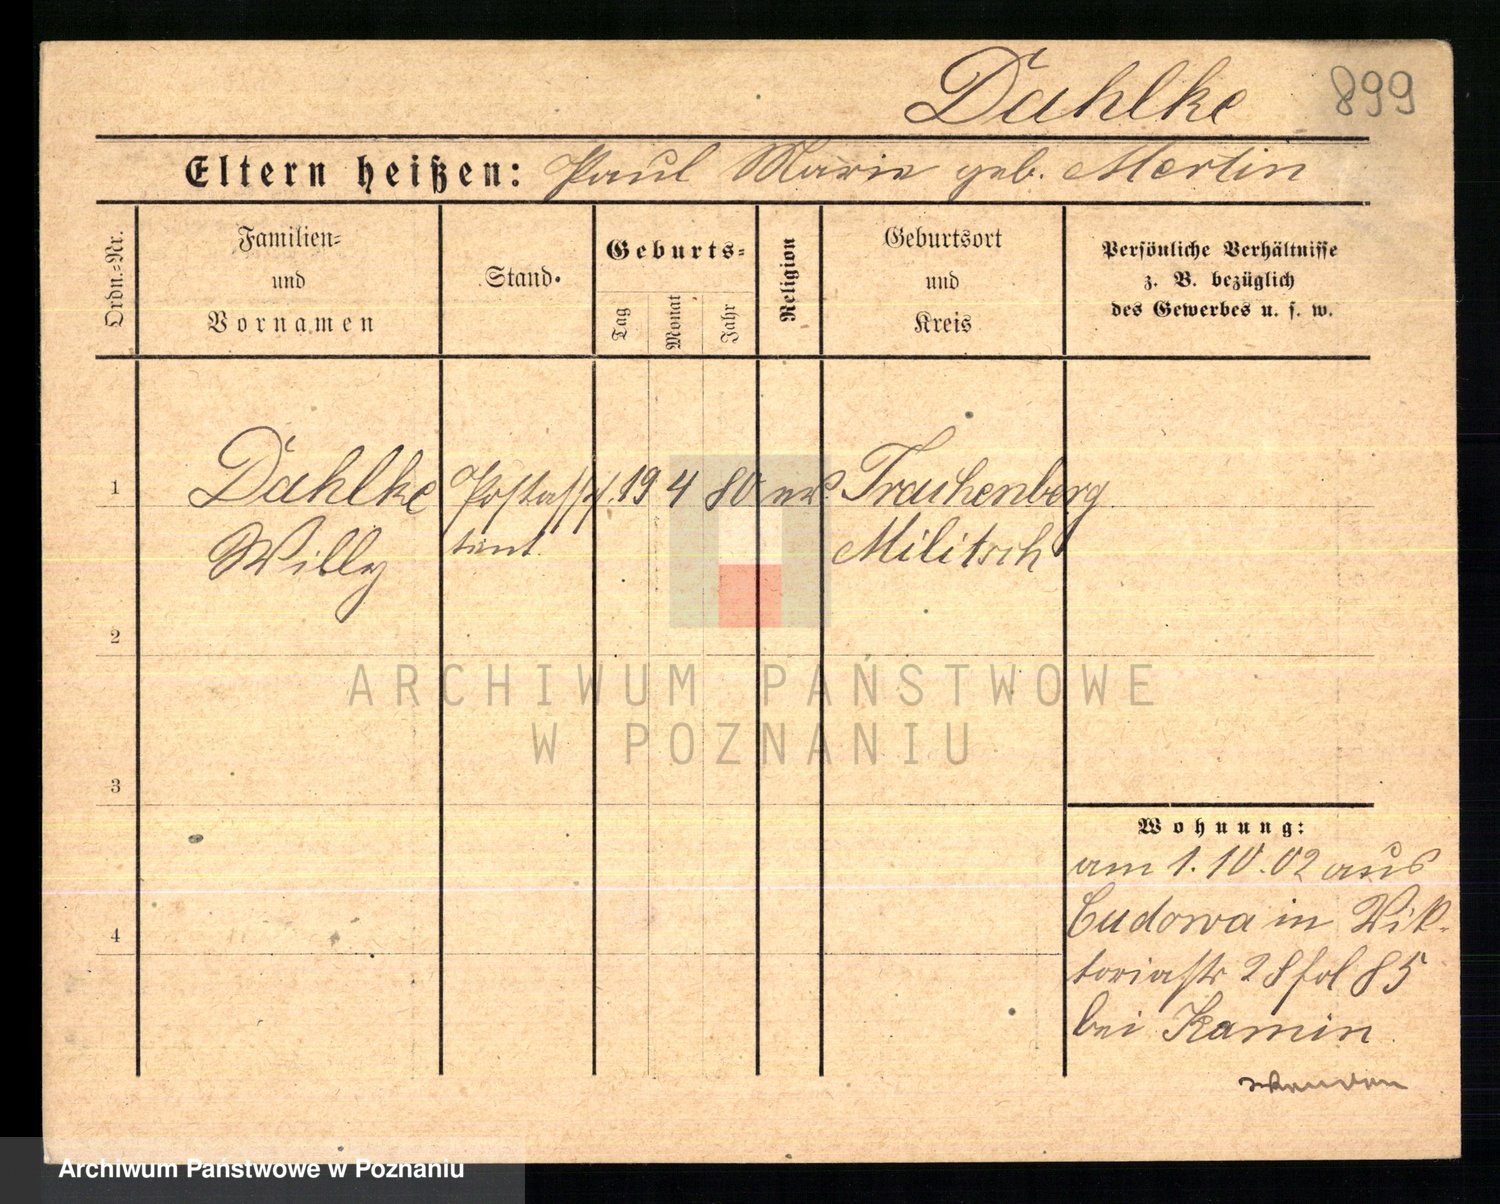 Dahlke 899
Eltern heißen: Paul Marie geb. Mertin
Ordn.-Nr.
Familien-
und
Vornamen
Stand.
Geburts-
Tag
Monat
Jahr
Religion
Geburtsort
und
Kreis
Persönliche Verhältnisse
z. B. bezüglich
des Gewerbes u. s. w.
1 Dahlke Postassi 19 4 80 ev. Trachenberg
Willy tent. Militsch
2
3
4
Wohnung:
am 1.10.02 aus
Cudowa in Vik-
toriastr 28 fol 85
bei Kamin
ARCHIWUM PAŃSTWOWE
W POZNANIU
Archiwum Państwowe w Poznaniu